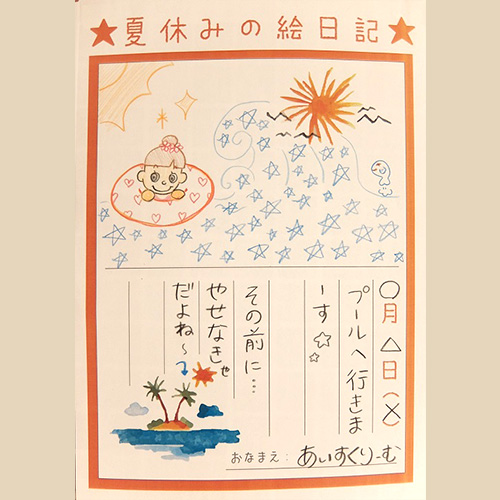 ★夏休みの絵日記★
○月△日(×)
プールへ行きま
ーす☆☆
その前に…
やせなきゃ
だよね〜
おなまえ：あいすくりーむ